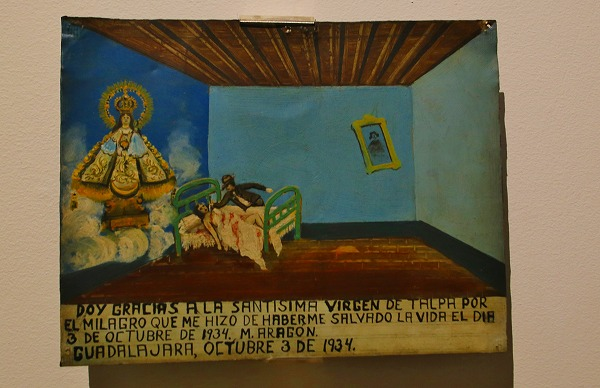 DOY GRACIAS A LA SANTISIMA VIRGEN DE TALPA POR
EL MILAGRO QUE ME HIZO DE HABERME SALVADO LA VIDA EL DIA
3 DE OCTUBRE DE 1934. M. ARAGON.
GUADALAJARA, OCTUBRE 3 DE 1934.